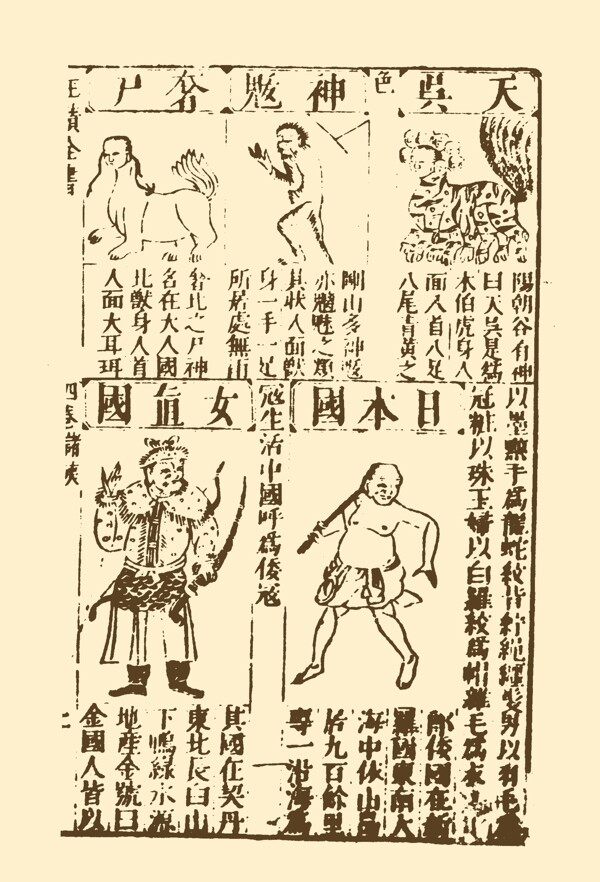 天吳
陽朝谷有神
曰天吳是爲
水伯虎身人
面人首八足
八尾青黃之
色
神䰡
剛山多神䰡
亦魑魅之類
其狀人面獸
身一手一足
所居處無雨
奢尸
奢比之尸神
名在大人國
北獸身人首
人面大耳珥
以墨黥手爲龍蛇紋 紵繩纏髮男以羽毛
冠粧以珠玉婦以白羅紋爲帽雜毛爲衣
日本國
即倭國在新
羅國東南大
海中依山島
居九百餘里
專一沿海爲
寇生活中國呼爲倭寇
女眞國
其國在契丹
東北長白山
下鴨綠水源
地產金號曰
金國人皆以
四卷諸夷